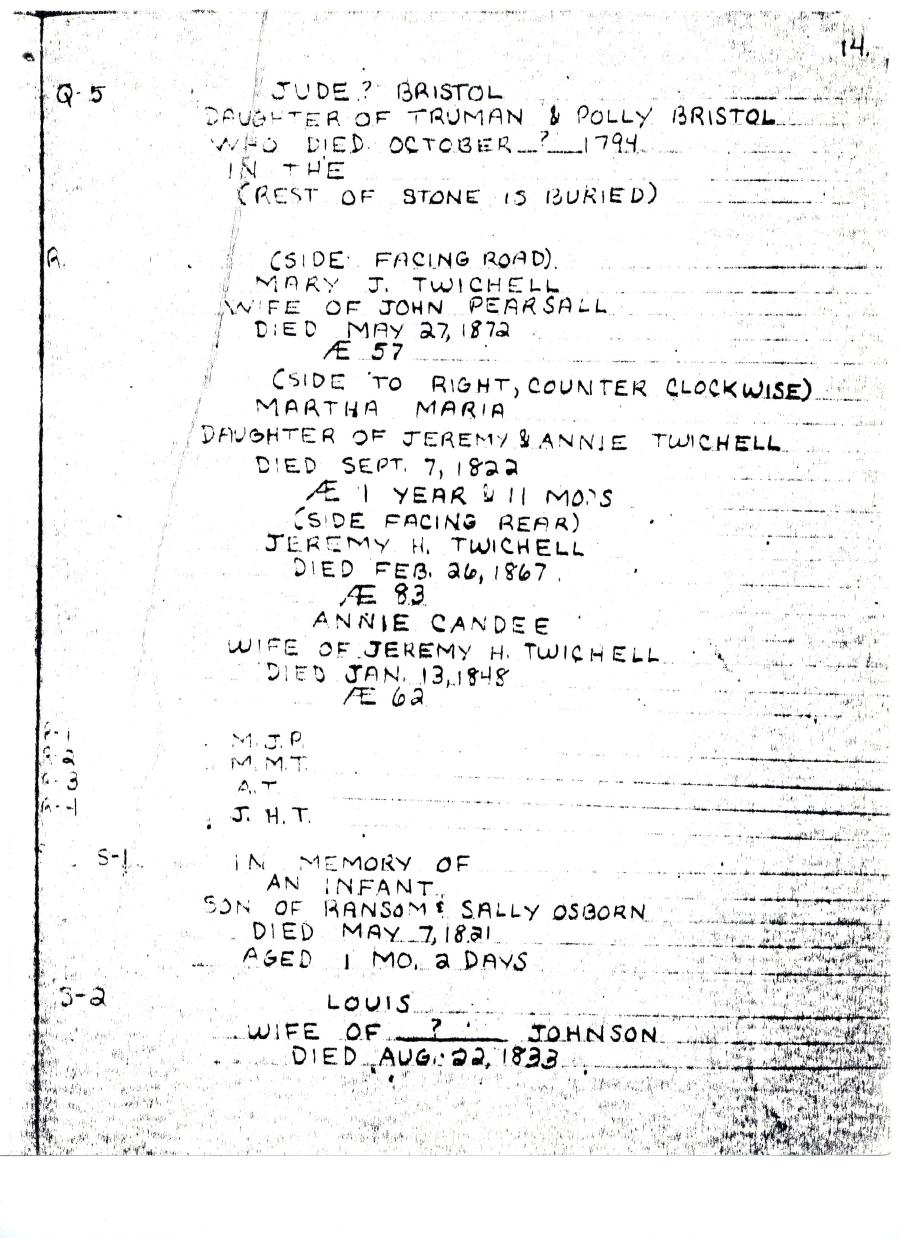 14.
Q-5 JUDE? BRISTOL
DAUGHTER OF TRUMAN & POLLY BRISTOL
WHO DIED OCTOBER ? 1794
IN THE
(REST OF STONE IS BURIED)
R. (SIDE FACING ROAD)
MARY J. TWICHELL
WIFE OF JOHN PEARSALL
DIED MAY 27, 1872
Æ 57
(SIDE TO RIGHT, COUNTER CLOCKWISE)
MARTHA MARIA
DAUGHTER OF JEREMY & ANNIE TWICHELL
DIED SEPT. 7, 1822
Æ 1 YEAR & 11 MO.'S
(SIDE FACING REAR)
JEREMY H. TWICHELL
DIED FEB. 26, 1867.
Æ 83
ANNIE CANDEE
WIFE OF JEREMY H. TWICHELL
DIED JAN. 13, 1848
Æ 62
R-1 M.J.P.
R-2 M.M.T.
R-3 A.T.
J.H.T.
S-1 IN MEMORY OF
AN INFANT
SON OF RANSOM & SALLY OSBORN
DIED MAY 7, 1821
AGED 1 MO. 2 DAYS
S-2 LOUIS
WIFE OF ? JOHNSON
DIED AUG. 22, 1833